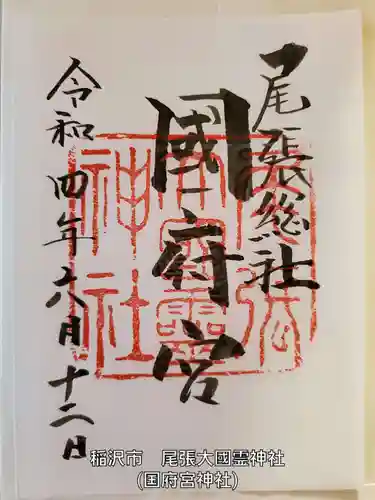 尾張総社
國府宮
令和四年六月十二日
尾張大國霊神社
稲沢市 尾張大國霊神社
(国府宮神社)